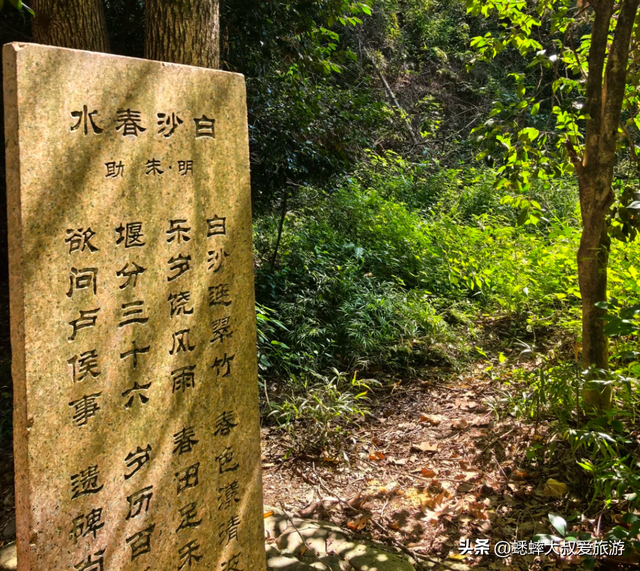 白沙春水
明·朱助
白沙翠竹 春色漾清波
乐岁饶风雨 春田足禾
堰分三十六 岁历
欲问卢侯事 遗碑尚
头条 @蟋蟀大叔爱旅游